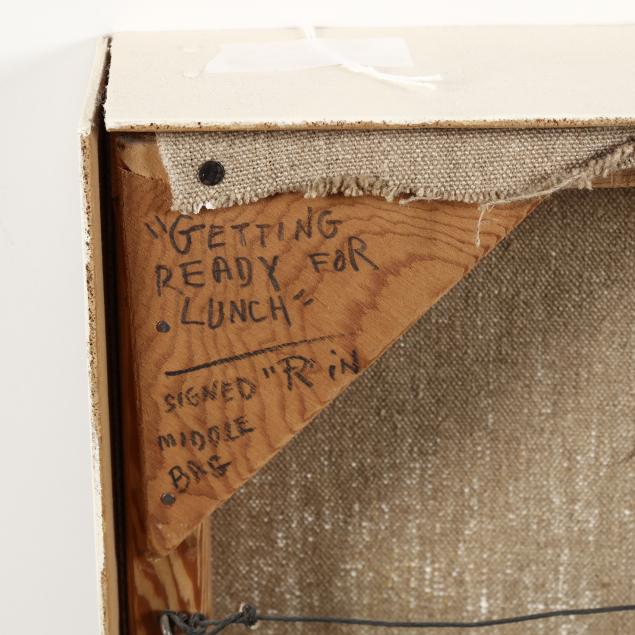 "GETTING
READY FOR
LUNCH"
SIGNED "R" iN
MIDDLE
BAG